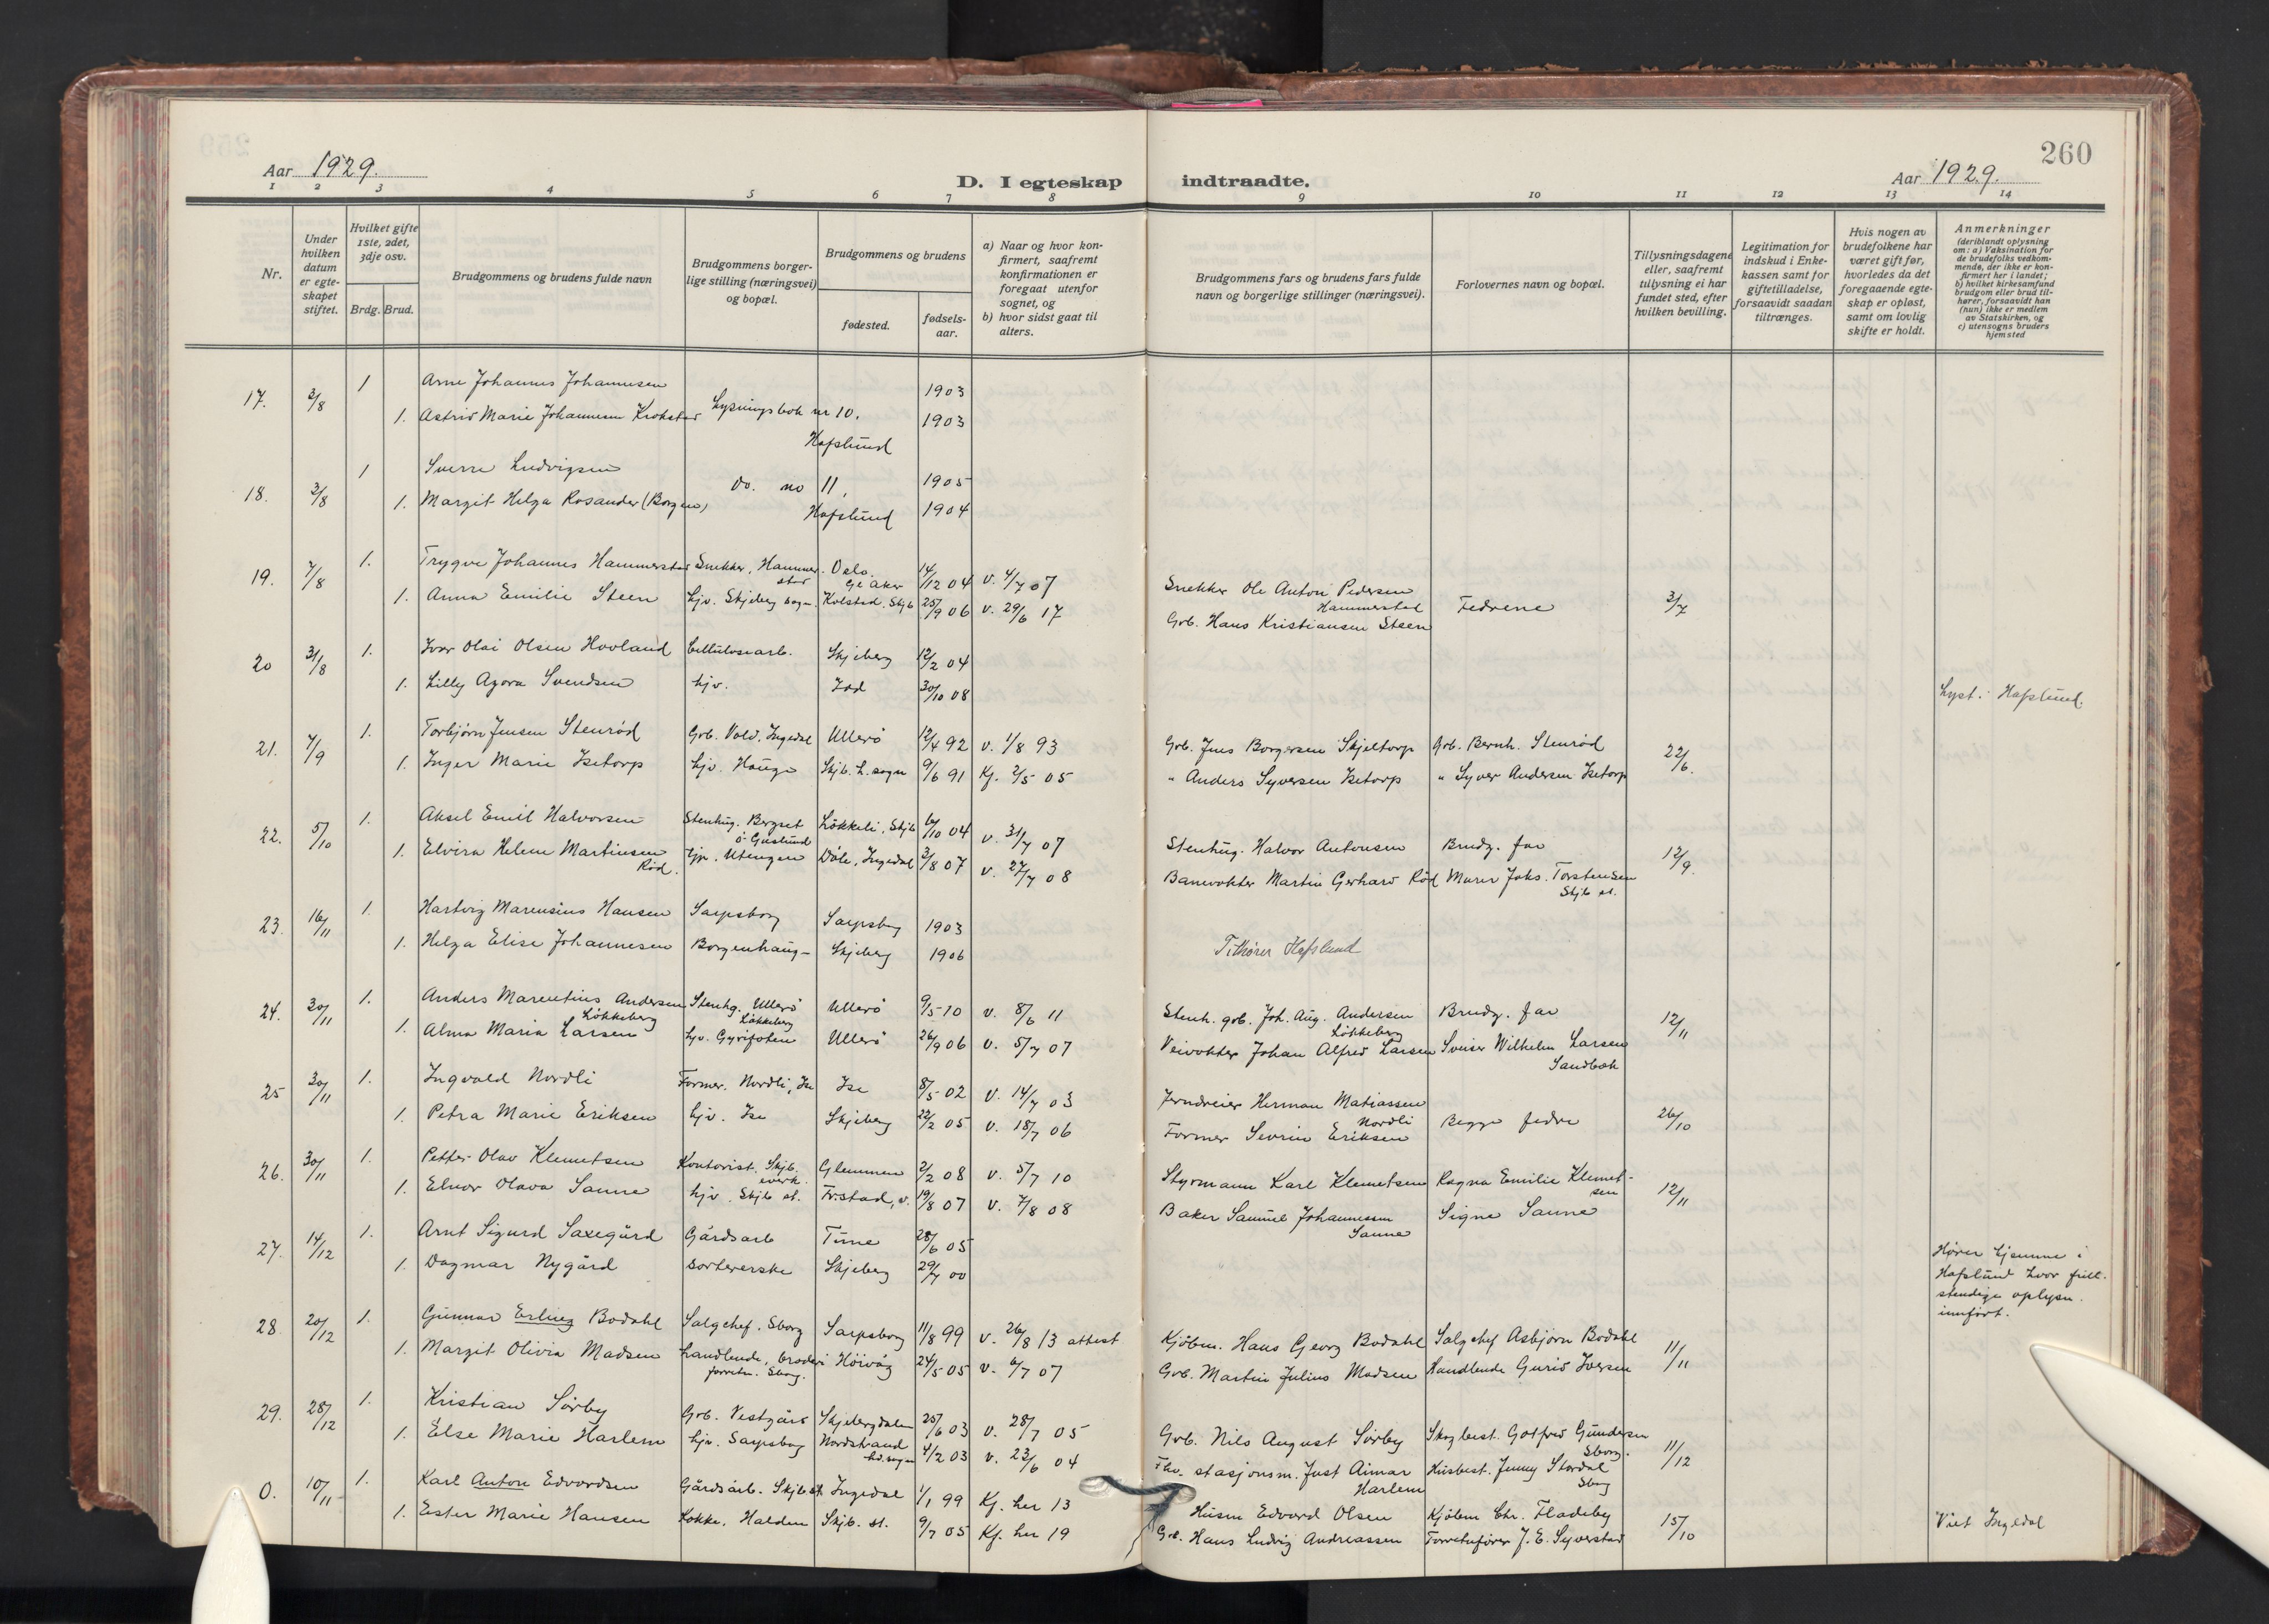 260
Aar 1929.
D. I egteskap indtraadte.
Aar 1929.
1 2 3 4 5 6 7 8 9 10 11 12 13 14
Nr.
Under hvilken datum er egte-skapet stiftet.
Hvilket gifte 1ste, 2det, 3dje osv.
Brdg. Brud.
Brudgommens og brudens fulde navn
Brudgommens borger-lige stilling (næringsvei) og bopæl.
Brudgommens og brudens
fødested.
fødsels-aar.
a) Naar og hvor kon-firmert, saafremt konfirmationen er foregaat utenfor sognet, og
b) hvor sidst gaat til alters.
Brudgommens fars og brudens fars fulde navn og borgerlige stillinger (næringsvei).
Forlovernes navn og bopæl.
Tillysningsdagene eller, saafremt tillysning ei har fundet sted, efter hvilken bevilling.
Legitimation for indskud i Enke-kassen samt for giftetilladelse, forsaavidt saadan tiltrænges.
Hvis nogen av brudefolkene har været gift før, hvorledes da det foregaaende egte-skap er opløst, samt om lovlig skifte er holdt.
Anmerkninger (deriblandt oplysning om: a) Vaksination for de brudefolks vedkom-mende, der ikke er kon-firmert her i landet; b) hvilket kirkesamfund brudgom eller brud til-hører, forsaavidt han (hun) ikke er medlem av Statskirken, og c) utensogns bruders hjemsted
17. 3/8 1 Arne Johannes Johannesen 1903
1. Astrid Marie Johannesen Krokstad Lysningsbok nr 10. Hafslund 1903
18. 3/8 1 Sverre Ludvigsen do. no 11, 1905
1. Margit Helga Rosander (Borgen) Hafslund 1904
19. 7/8 1. Trygve Johannes Hammerstad Snekker, Hammerstad Oslo. Gl. Aker 14/12 04 v. 4/7 07 Snekker Ole Anton Pedersen Hammerstad Fedrene 3/7
1. Anna Emilie Steen hjv. Skjeberg sogn Kolstad, Skjb 25/9 06 v. 29/6 17 Grb. Hans Kristiansen Steen
20 31/8 1. Ivar Olai Olsen Hovland Cellulosearb. Skjeberg 12/2 04
1. Lilly Agora Svendsen hjv. Idd 30/10 08 Lyst. Hafslund.
21. 7/9 1. Torbjørn Jensen Stenrød Grb. Vold, Ingedal Ullerö 12/4 92 v. 1/8 93 Grb. Jens Borgersen Skjeltorp Grb. Bernh. Stenrød 22/6.
1. Inger Marie Isetorp hjv. Hauge Skjb. h. sogn 9/6 91 Kf. 2/5 05 " Anders Syversen Isetorp " Syver Andersen Isetorp
22. 5/10 1. Aksel Emil Halvorsen Stenhug. Bergset ö. Guslund Løkkeli, Skjb 6/10 04 v. 31/7 07 Stenhug. Halvor Antonsen Brudg. far 12/9.
1. Elvira Helene Martinsen Rød. hjv. Utengen Döle, Ingedal 3/8 07 v. 27/7 08 Banevokter Martin Gerhard Rød Murer Johs. Torstensen Skjb st.
23. 16/11 1. Hartvig Marensius Hansen Sarpsborg Sarpsborg 1903
1. Helga Elise Johannesen Borgenhaug Skjeberg 1906 Tilhører Hafslund
24. 30/11 1. Anders Marentius Andersen Løkkeberg Stenhg. Ullerö Løkkeberg Ullerö 9/5 10 v. 8/6 11 Stenh. grb. Joh. Aug. Andersen Løkkeberg Brudg. far 12/11
1. Alma Maria Larsen hjv. Gyrifoten Ullerö 26/9 06 v. 5/7 07 Veivokter Johan Alfred Larsen Sveiser Wilhelm Larsen Sandbak
25 30/11 1. Ingvald Nordli Former. Nordli, Ise Ise 8/5 02 v. 14/7 03 Jerndreier Herman Matiassen Nordli Begge fedre 26/10
1. Petra Marie Eriksen hjv. Ise Skjeberg 22/2 05 v. 18/7 06 Former Severin Eriksen
26. 30/11 1. Petter Olav Klemetsen Kontorist. Skjb. everk. Glemmen 2/2 08 v. 5/7 10 Styrmann Karl Klemetsen Ragna Emilie Klemetsen 12/11
1. Elnor Olava Sanne hjv. Skjb st. Frstad, v. 19/8 07 v. 7/8 08 Baker Samuel Johannessen Sanne Signe Sanne
27. 14/12 1. Arnt Sigurd Saxegård Gårdsarb Time 28/6 05
1. Dagmar Nygård sortererske Skjeberg 29/7 00
Hører hjemme i Hafslund hvor full-stendige oplysn. innført.
28. 20/12 1. Gunnar Erling Bodahl Salgchef. Sborg Sarpsborg 11/8 99 v. 26/8 13 attest Kjöbm. Hans Georg Bodahl Salgchef Asbjørn Bodahl 11/11
1. Margit Olivia Madsen handlende, broderi forretn. Sborg. Höivåg 24/5 05 v. 6/7 07 Grb. Martin Julius Madsen Handlende Gurid Iversen
29. 28/12 1. Kristian Sörby Grb. Vestgård Skjebergdalen 25/6 03 v. 28/7 05 Grb. Nils August Sörby Skogbest. Gotfred Gundersen Sborg. 11/12
1. Else Marie Harlem hjv. Sarpsborg Nordstrand hd.sogn 4/2 03 v. 23/6 04 Fhv. stasjonsm. Just Aimar Harlem Husbest. Jenny Stordal Sborg
0. 10/11 1. Karl Anton Edvardsen Gårdsarb. Skjb st Ingedal 1/1 99 Kf. her 13 Husm Edvard Olsen Kjöbm Chr. Fladeby 15/10 Viet Ingedal
1. Ester Marie Hansen Kokke, Halden Skjb. st. 9/7 05 Kf. her 19 Grb. Hans Ludvig Andreassen Forretnfører J. E. Syverstad